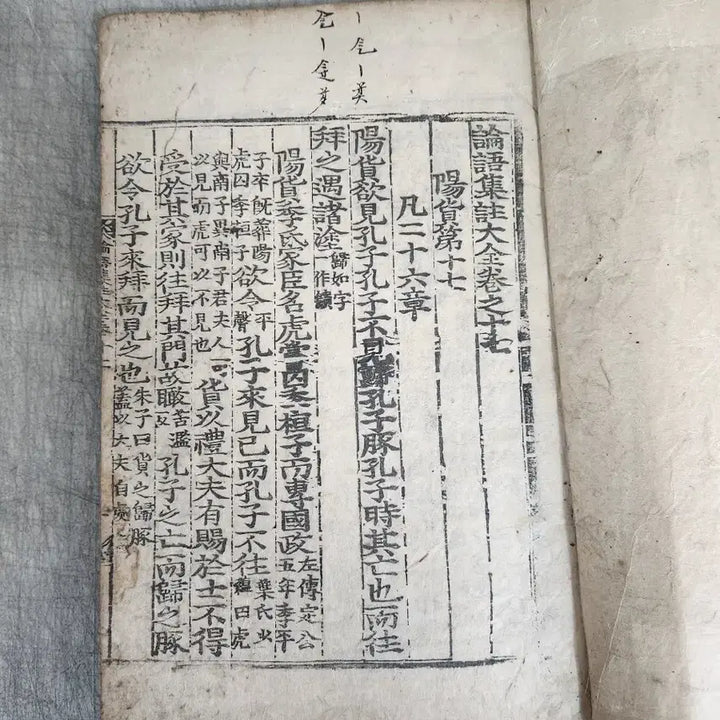 論語集註大全卷之十七
陽貨第十七
凡二十六章
陽貨欲見孔子孔子不見歸孔子豚孔子時其亡也而往
拜之遇諸塗歸如字作饋
陽貨季氏家臣名虎嘗囚季桓子而專國政左傳定公五年季平
子卒旣葬陽虎囚季桓子欲令平聲孔子來見己而孔子不往葉氏少蘊曰虎
與南子異南子君夫人以見而虎可以不見也貨以禮大夫有賜於士不得
受於其家則往拜其門故瞰苦濫反孔子之亡而歸之豚
欲令孔子來拜而見之也朱子曰貨之歸豚蓋以大夫自處